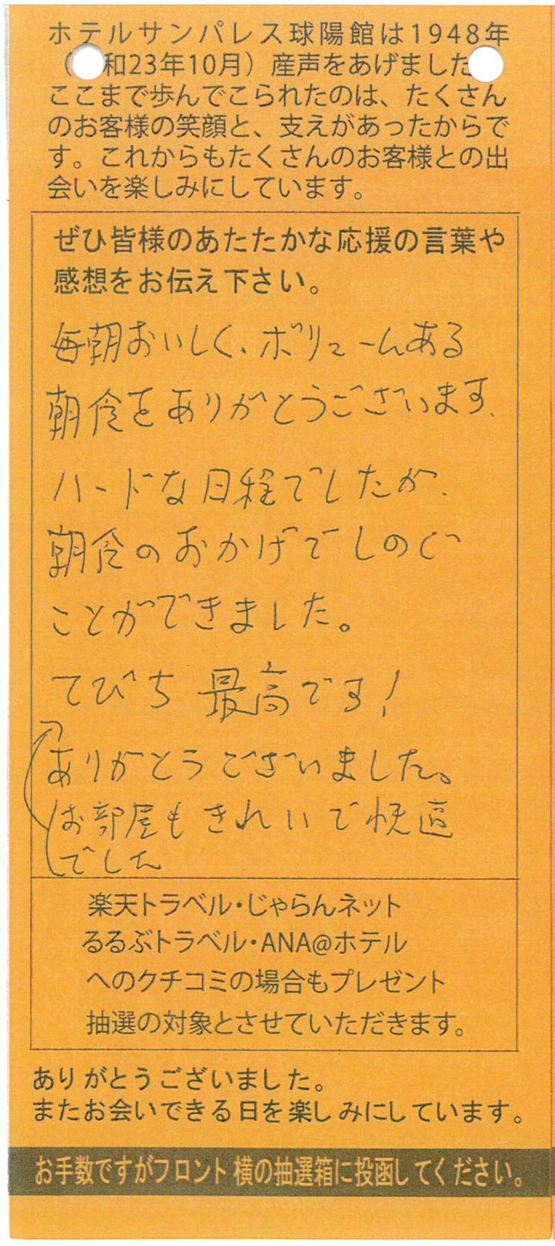 ホテルサンパレス球陽館は1948年
和23年10月）産声をあげました
ここまで歩んでこられたのは、たくさん
のお客様の笑顔と、支えがあったからで
す。これからもたくさんのお客様との出
会いを楽しみにしています。
ぜひ皆様のあたたかな応援の言葉や
感想をお伝え下さい。
毎朝おいしく、ボリュームある
朝食をありがとうございます。
ハードな日程でしたが、
朝食のおかげでしのぐ
ことができました。
てびち最高です！
ありがとうございました。
お部屋もきれいで快適
でした
楽天トラベル・じゃらんネット
るるぶトラベル・ANA@ホテル
へのクチコミの場合もプレゼント
抽選の対象とさせていただきます。
ありがとうございました。
またお会いできる日を楽しみにしています。
お手数ですがフロント横の抽選箱に投函してください。